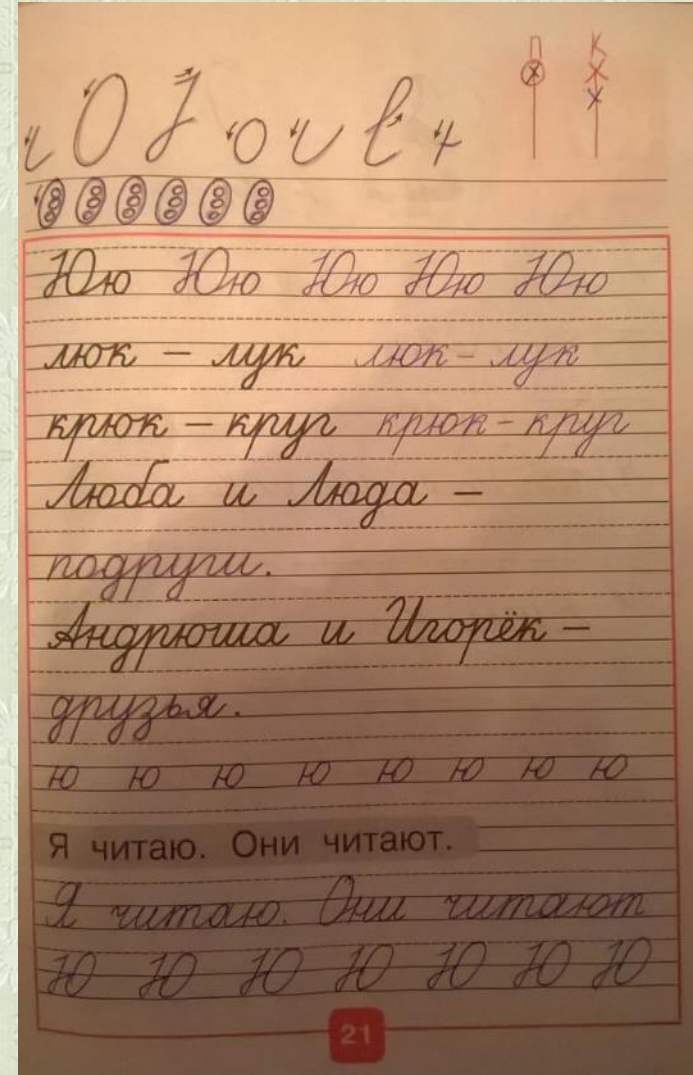 П К
Юю Юю Юю Юю Юю
люк – лук люк - лук
крюк – круг крюк - круг
Люба и Люда –
подруги.
Андрюша и Игорёк –
друзья.
ю ю ю ю ю ю ю ю
Я читаю. Они читают.
Я читаю. Они читают
Ю Ю Ю Ю Ю Ю Ю
21